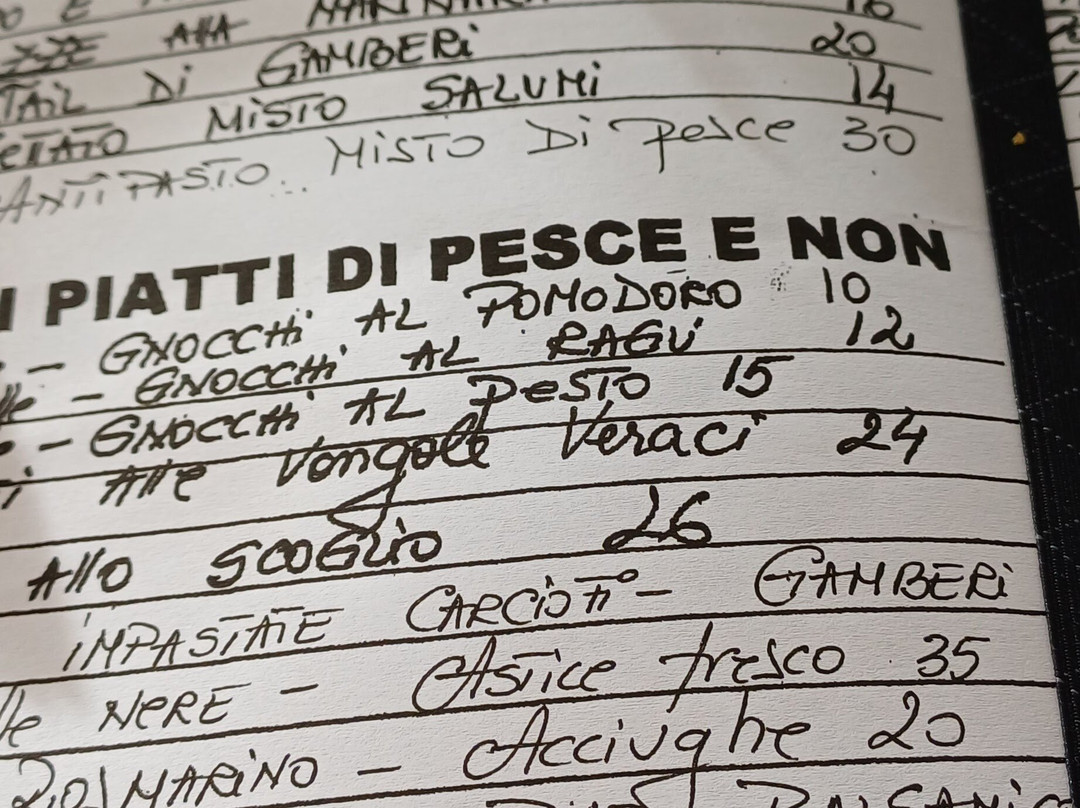 ALLA MARINARA 16
TAIL Di GAMBERi 20
MiSTO SALUMi 14
ANTiPASTO... MiSTO Di Pesce 30
I PIATTI DI PESCE E NON
- GNOCCHi AL POMODORO 10
lle - GNOCCHi AL RAGU 12
- GNOCCHi AL PeSTO 15
i Alle Vongole Veraci 24
Allo SCOGLiO 26
iMPASTATE CARCiOFi - GAMBERi
lle NeRE - Astice fresco 35
ROSMARiNO - Acciughe 20